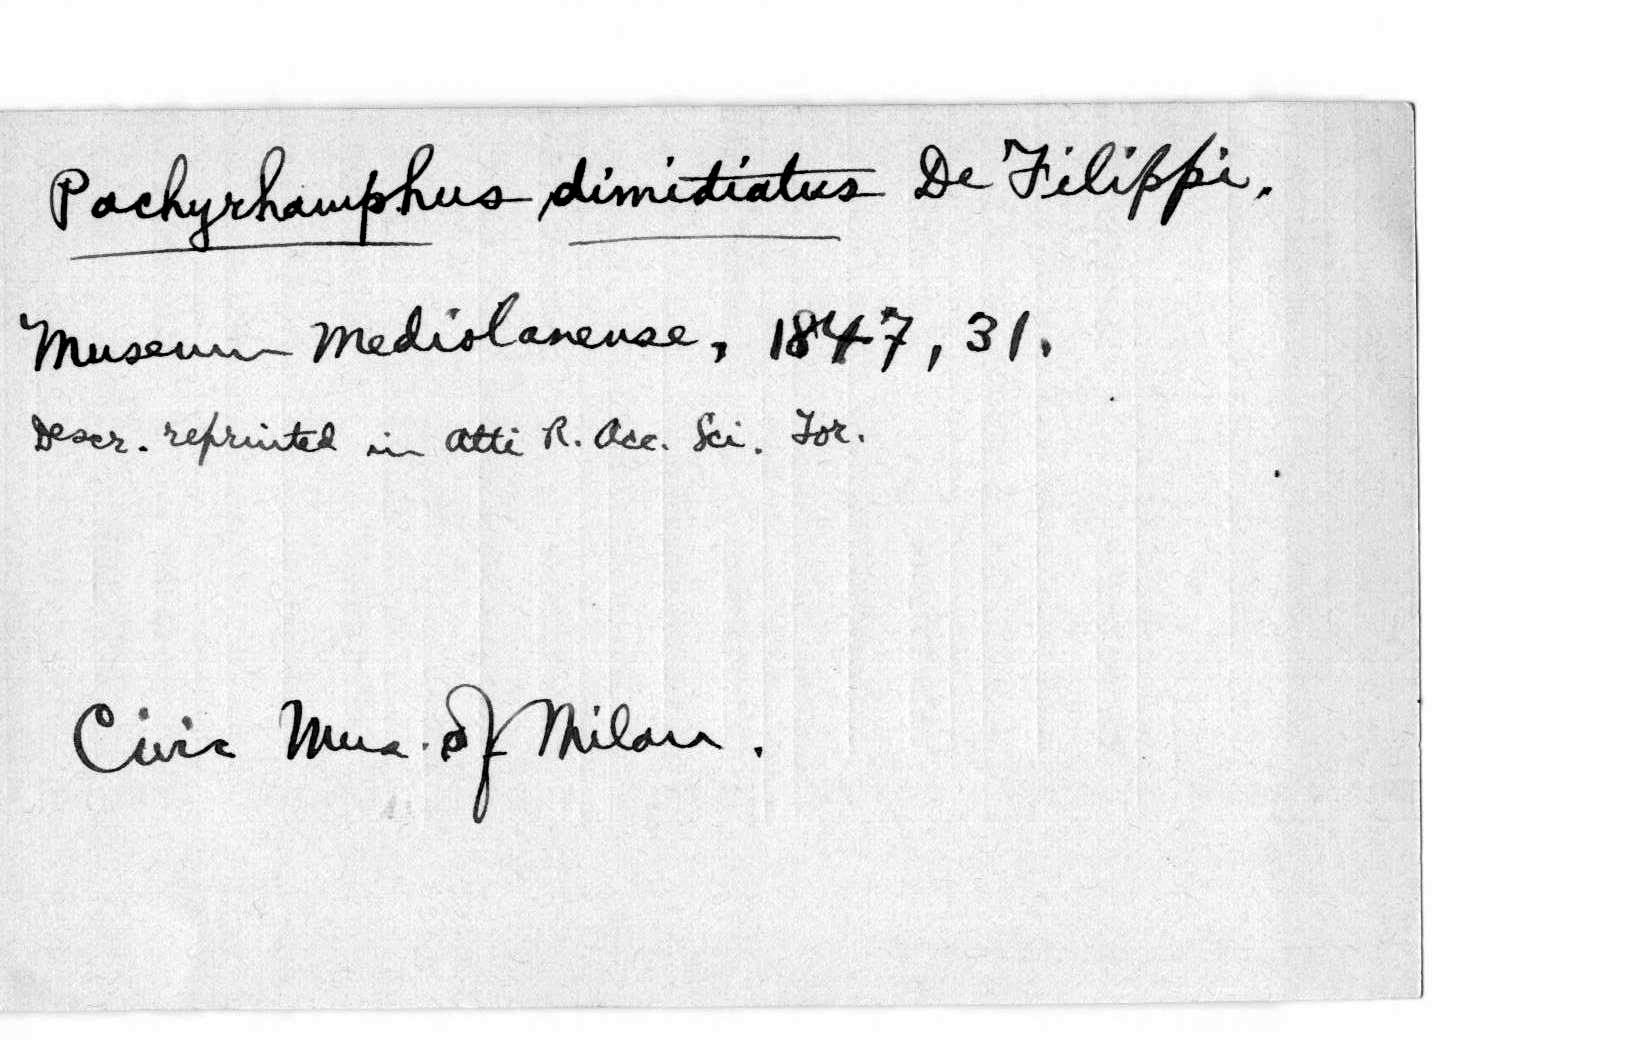 Pachyrhamphus dimidiatus De Filippi.
Museum Mediolanense, 1847, 31.
Descr. reprinted in Atti R. Acc. Sci. Tor.
Civic Mus. of Milan.